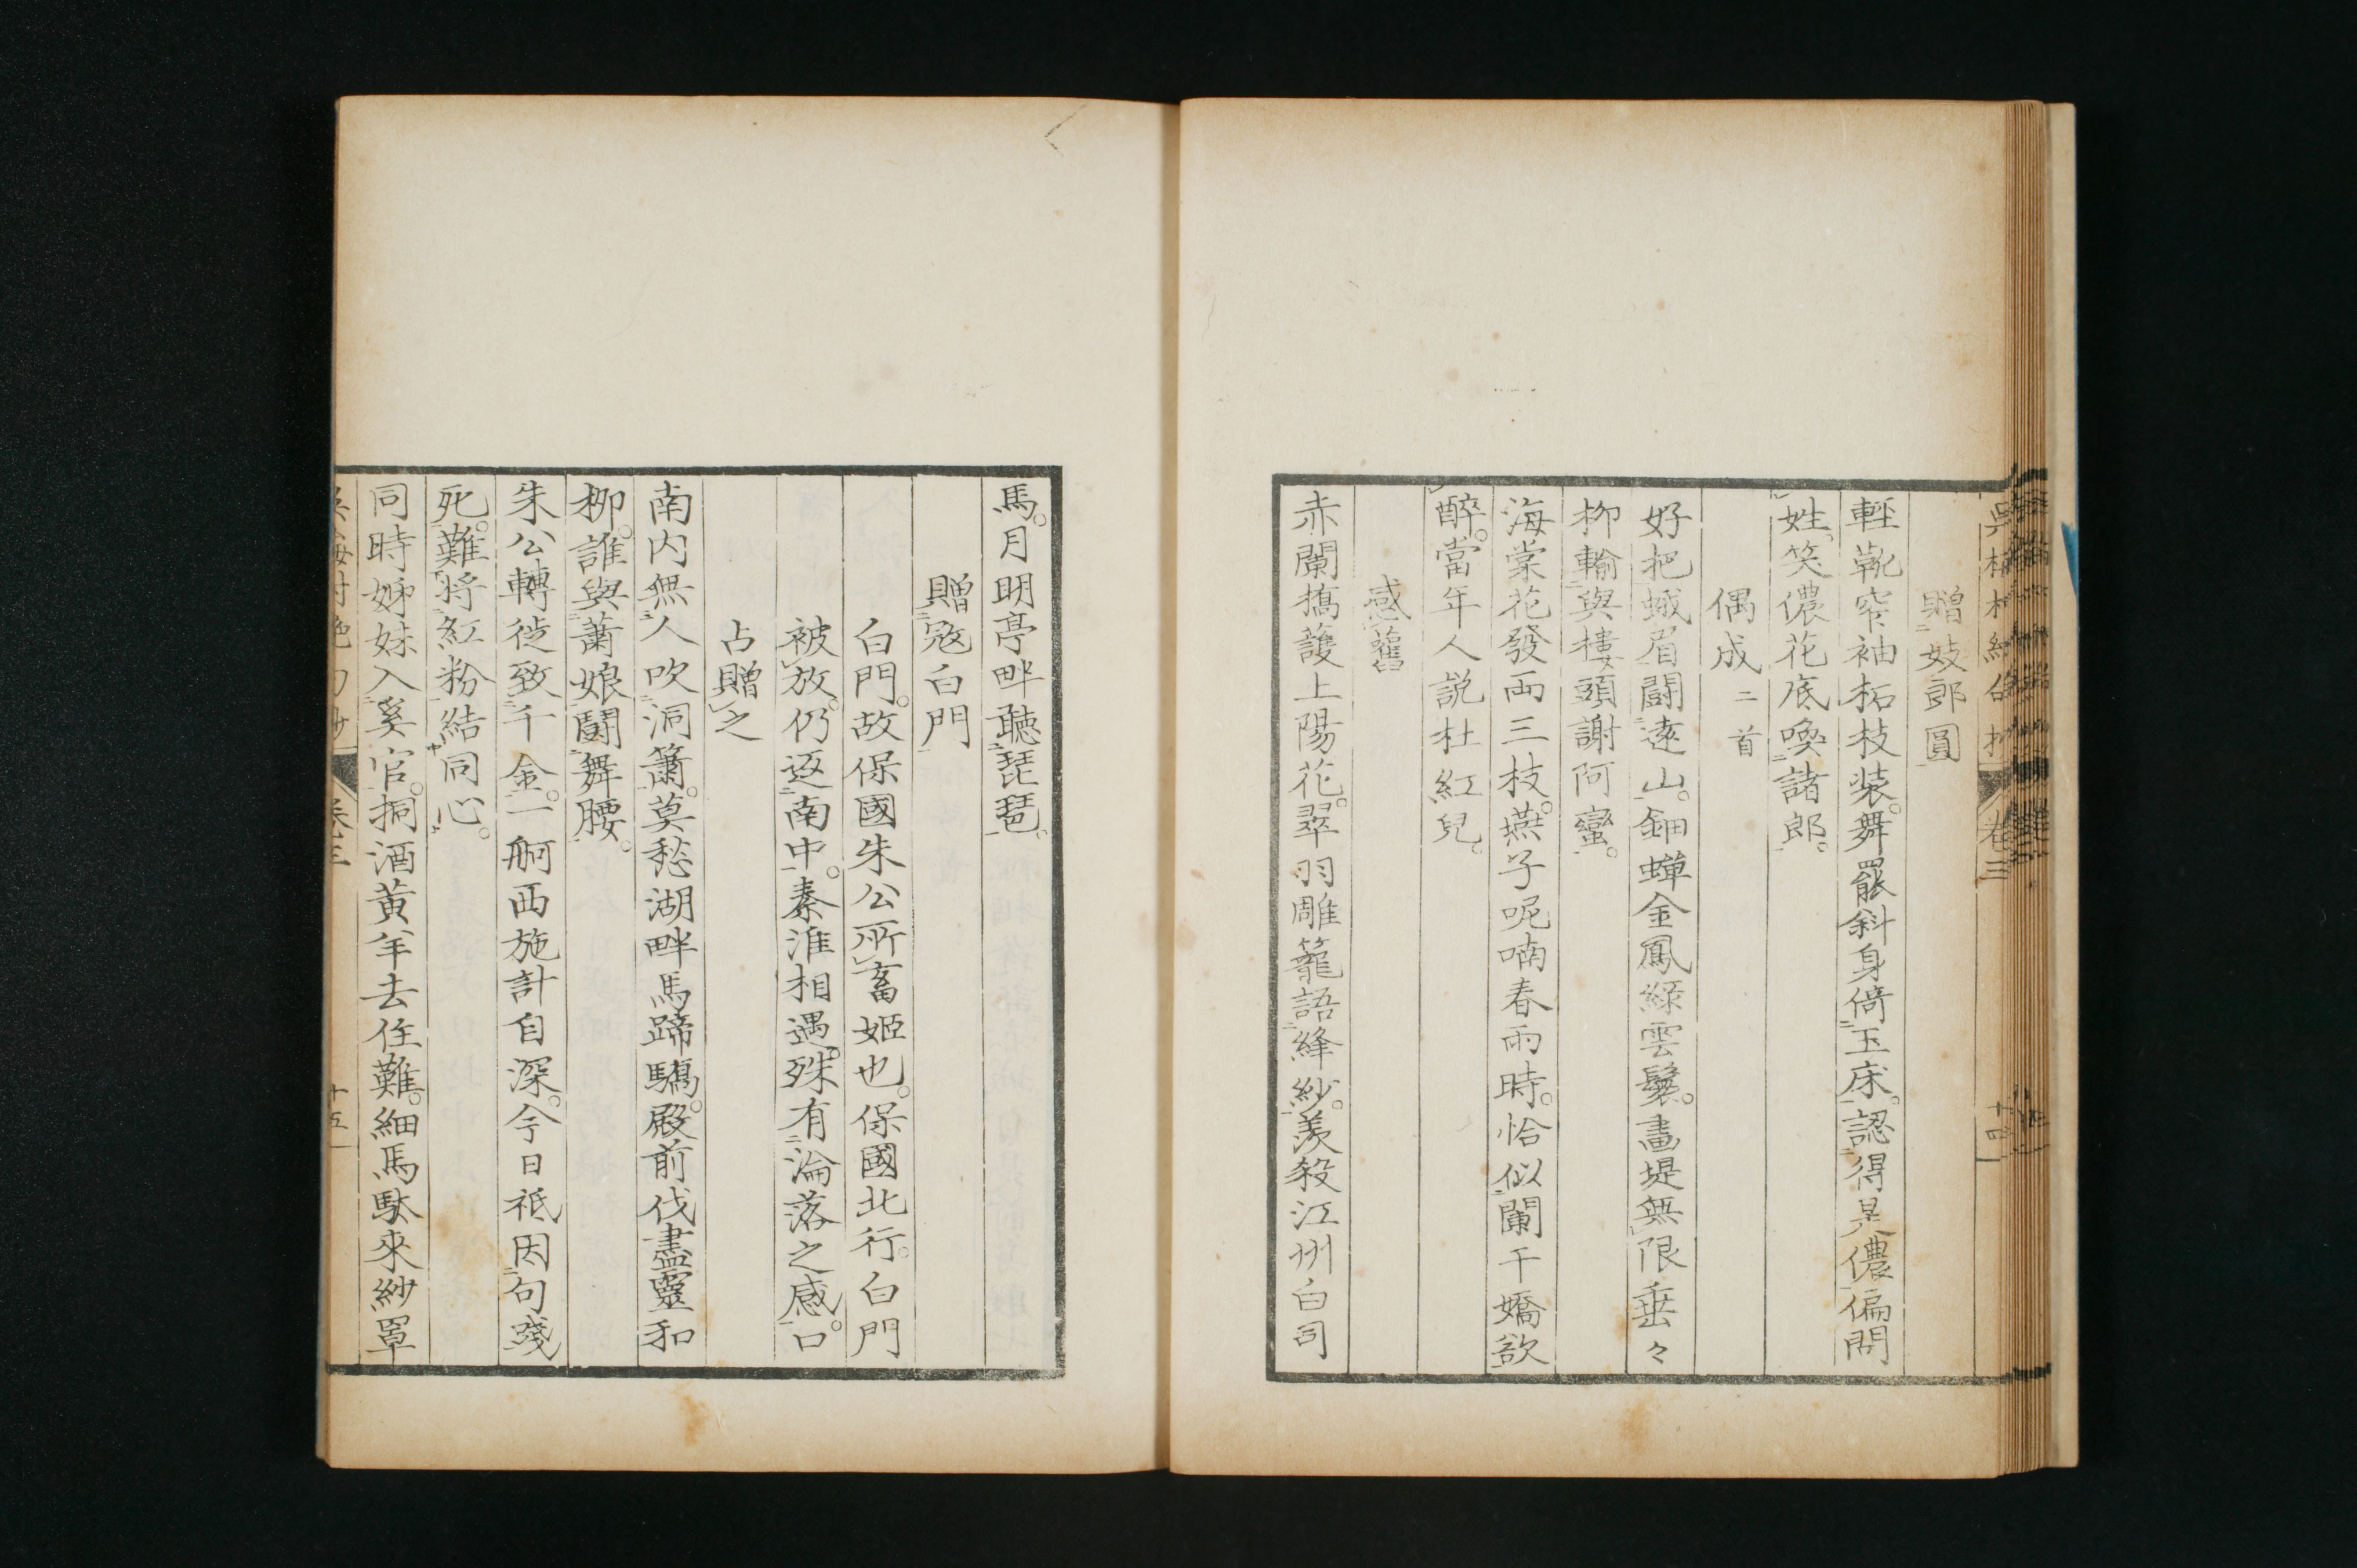 贈妓郎圓
輕靴窄袖柘枝装。舞罷斜身倚玉床。認得是儂偏問
姓。笑儂花底喚諸郎。
偶成二首
好把蛾眉鬪遠山。鈿蟬金鳳綠雲鬟。畵堤無限垂々
柳。輸與樓頭謝阿蠻。
海棠花發兩三枝。燕子呢喃春雨時。恰似闌干嬌欲
醉。當年人説杜紅兒。
感舊
赤闌撝護上陽花。翠羽雕籠語絳紗。羨殺江州白司
卷三
十四
馬。月明亭畔聽琵琶。
贈寇白門
白門。故保國朱公所畜姬也。保國北行。白門
被放。仍返南中。秦淮相遇。殊有淪落之感。口
占贈之
南内無人吹洞簫。莫愁湖畔馬蹄驕。殿前伐盡靈和
柳。誰與蕭娘鬪舞腰。
朱公轉徙致千金。一舸西施計自深。今日祇因句踐
死。難將紅粉結同心。
同時姊妹入奚官。挏酒黃羊去住難。細馬馱來紗罩
卷三
十五